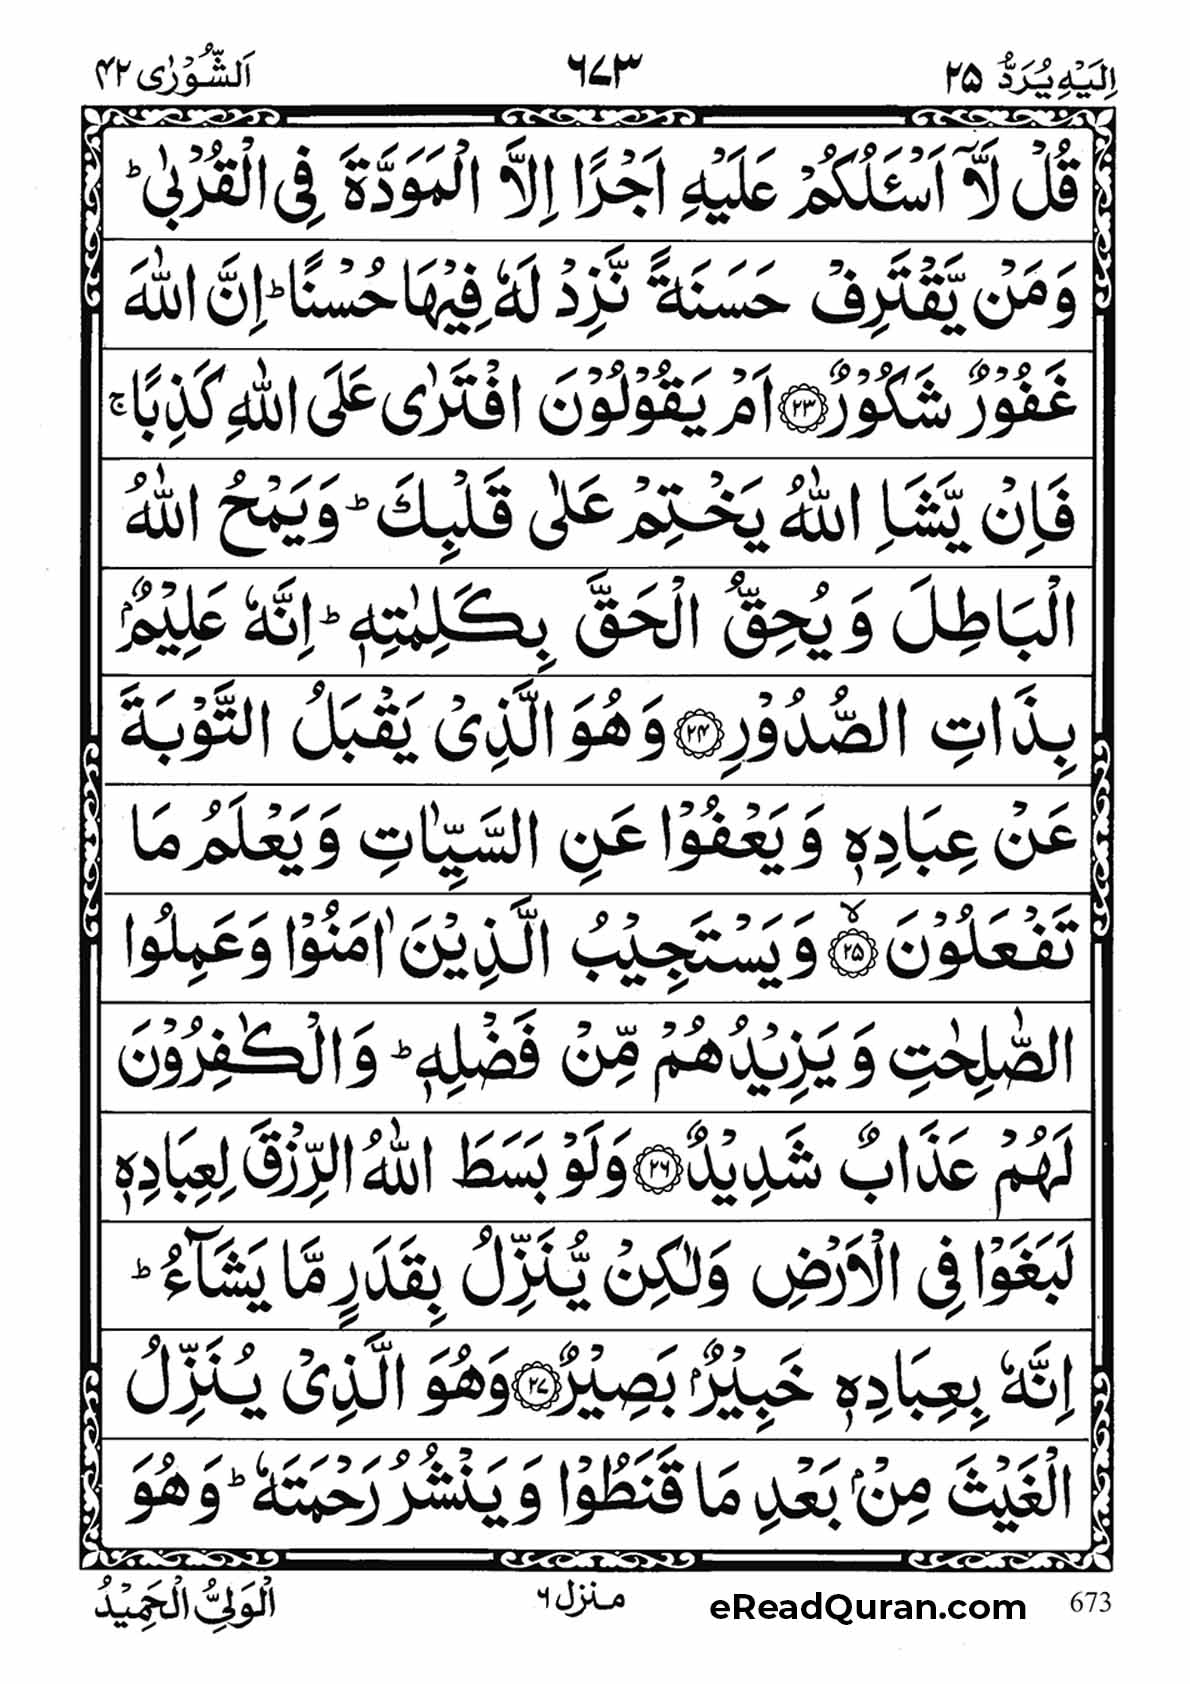 اِلَيْهِ يُرَدُّ ٢٥ ٦٧٣ اَلشُّوْرٰى ٤٢
قُلْ لَّاۤ اَسْـَٔلُكُمْ عَلَيْهِ اَجْرًا اِلَّا الْمَوَدَّةَ فِى الْقُرْبٰى ؕ
وَمَنْ يَّقْتَرِفْ حَسَنَةً نَّزِدْ لَهٗ فِيْهَا حُسْنًا ؕ اِنَّ اللّٰهَ
غَفُوْرٌ شَكُوْرٌ ﴿٢٣﴾ اَمْ يَقُوْلُوْنَ افْتَرٰى عَلَى اللّٰهِ كَذِبًا ۚ
فَاِنْ يَّشَاِ اللّٰهُ يَخْتِمْ عَلٰى قَلْبِكَ ؕ وَيَمْحُ اللّٰهُ
الْبَاطِلَ وَيُحِقُّ الْحَقَّ بِكَلِمٰتِهٖ ؕ اِنَّهٗ عَلِيْمٌۢ
بِذَاتِ الصُّدُوْرِ ﴿٢٤﴾ وَهُوَ الَّذِىْ يَقْبَلُ التَّوْبَةَ
عَنْ عِبَادِهٖ وَيَعْفُوْا عَنِ السَّيِّاٰتِ وَيَعْلَمُ مَا
تَفْعَلُوْنَ ۙ﴿٢٥﴾ وَيَسْتَجِيْبُ الَّذِيْنَ اٰمَنُوْا وَعَمِلُوا
الصّٰلِحٰتِ وَيَزِيْدُهُمْ مِّنْ فَضْلِهٖ ؕ وَالْكٰفِرُوْنَ
لَهُمْ عَذَابٌ شَدِيْدٌ ﴿٢٦﴾ وَلَوْ بَسَطَ اللّٰهُ الرِّزْقَ لِعِبَادِهٖ
لَبَغَوْا فِى الْاَرْضِ وَلٰكِنْ يُّنَزِّلُ بِقَدَرٍ مَّا يَشَآءُ ؕ
اِنَّهٗ بِعِبَادِهٖ خَبِيْرٌۢ بَصِيْرٌ ﴿٢٧﴾ وَهُوَ الَّذِىْ يُنَزِّلُ
الْغَيْثَ مِنْۢ بَعْدِ مَا قَنَطُوْا وَيَنْشُرُ رَحْمَتَهٗ ؕ وَهُوَ
673 eReadQuran.com منزل ٦ الْوَلِىُّ الْحَمِيْدُ